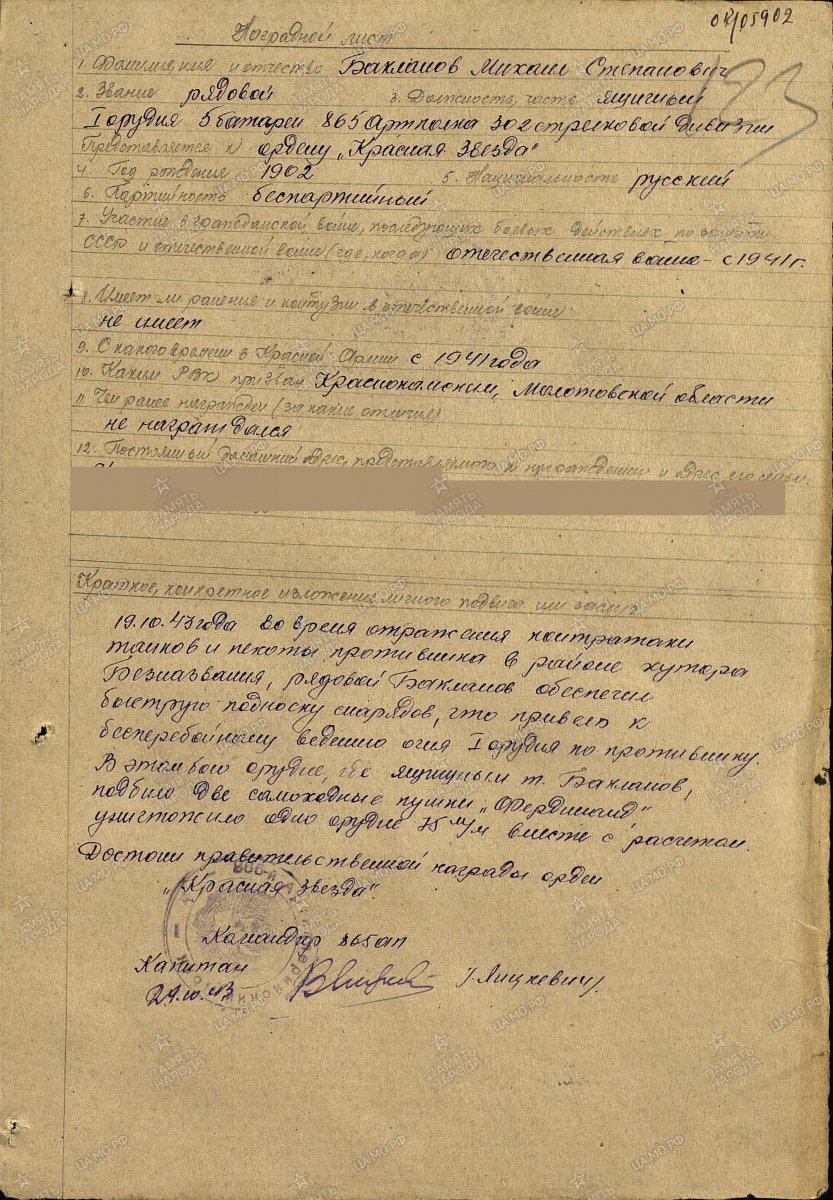 Наградной лист
1. Фамилия имя и отчество Бакланов Михаил Степанович
2. Звание рядовой 3. Должность, часть ящичный
I орудия 5 батареи 865 Артполка 302 стрелковой Дивизии
Представляется к ордену „Красная Звезда"
4. Год рождения 1902 5. Национальность русский
6. Партийность беспартийный
7. Участие в гражданской войне, последующих боевых действиях по защите
СССР и отечественной войне (где, когда) отечественная война - с 1941 г.
8. Имеет ли ранения и контузии в отечественной войне
не имеет
9. С какого времени в Красной Армии с 1941 года
10. Каким РВК призван Краснокамским, Молотовской области
11. Чем ранее награжден (за какие отличия)
не награждался
12. Постоянный домашний адрес представляемого к награждению и адрес его семьи
Краткое, конкретное изложение личного подвига или заслуг
19.10.43 года во время отражения контратаки
танков и пехоты противника в районе хутора
Безназвания, рядовой Бакланов обеспечил
быструю подноску снарядов, что привело к
бесперебойному ведению огня I орудия по противнику.
В этом бою орудие, где ящичным т. Бакланов,
подбило две самоходные пушки „Фердинанд"
уничтожило одно орудие 75 м/м вместе с расчетом.
Достоин правительственной награды орден
„Красная Звезда".
Командир 865 ап
Капитан /Яцкевич/
29.10.43
123
ПАМЯТЬ НАРОДА
ЦАМО.РФ